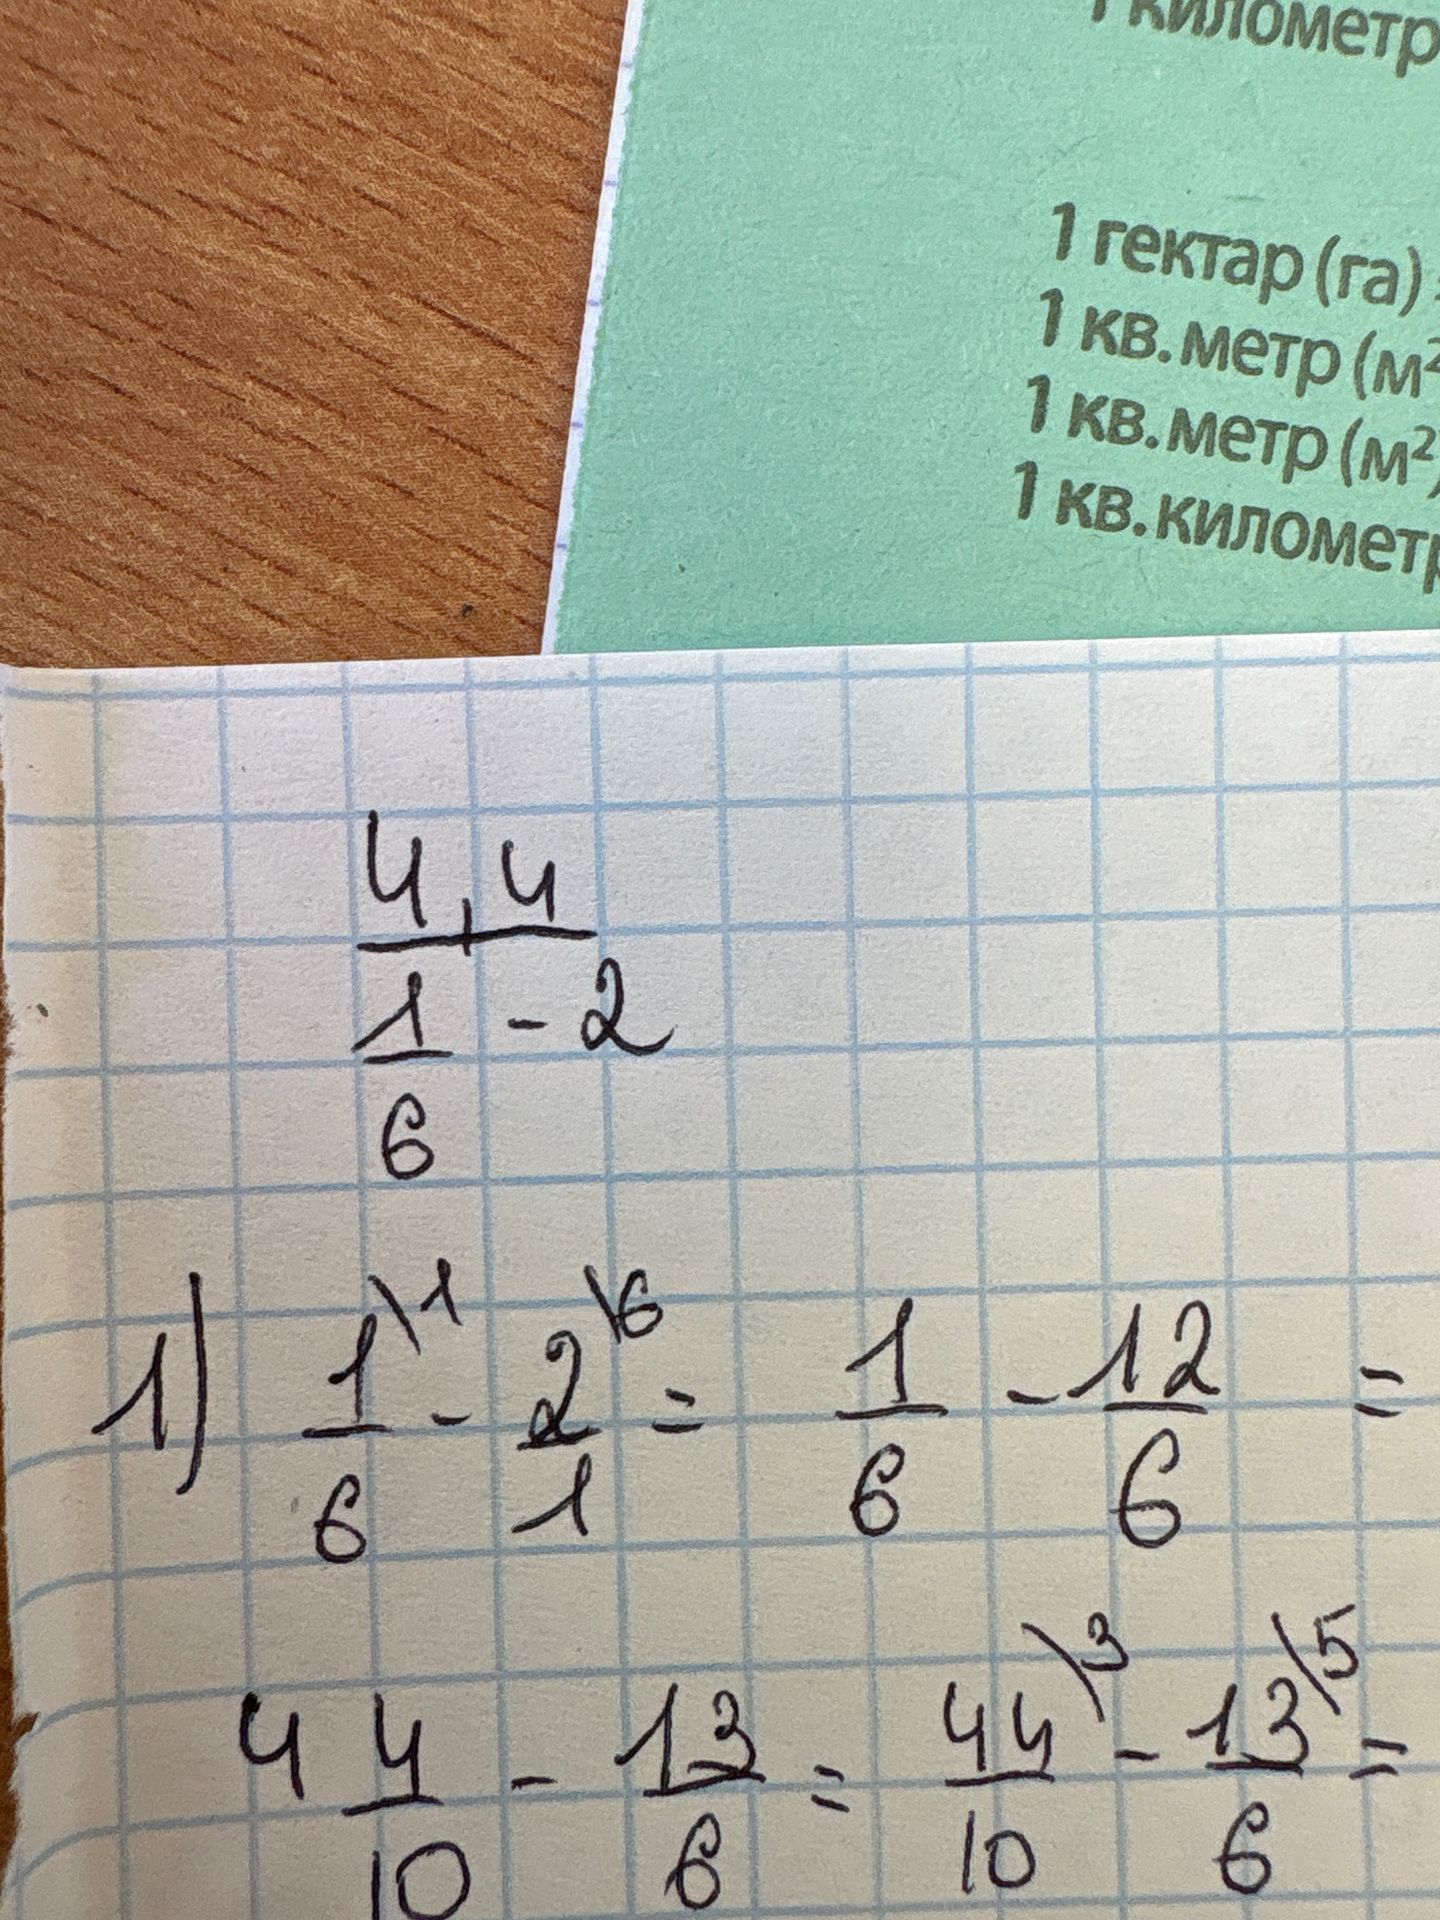 1 километр
1 гектар (га)
1 кв. метр (м²
1 кв. метр (м²)
1 кв. километр
4,4
1/6 - 2
1) 1/6 \1 - 2/1 \6 = 1/6 - 12/6 =
4 4/10 - 13/6 = 44/10 \3 - 13/6 \5 =